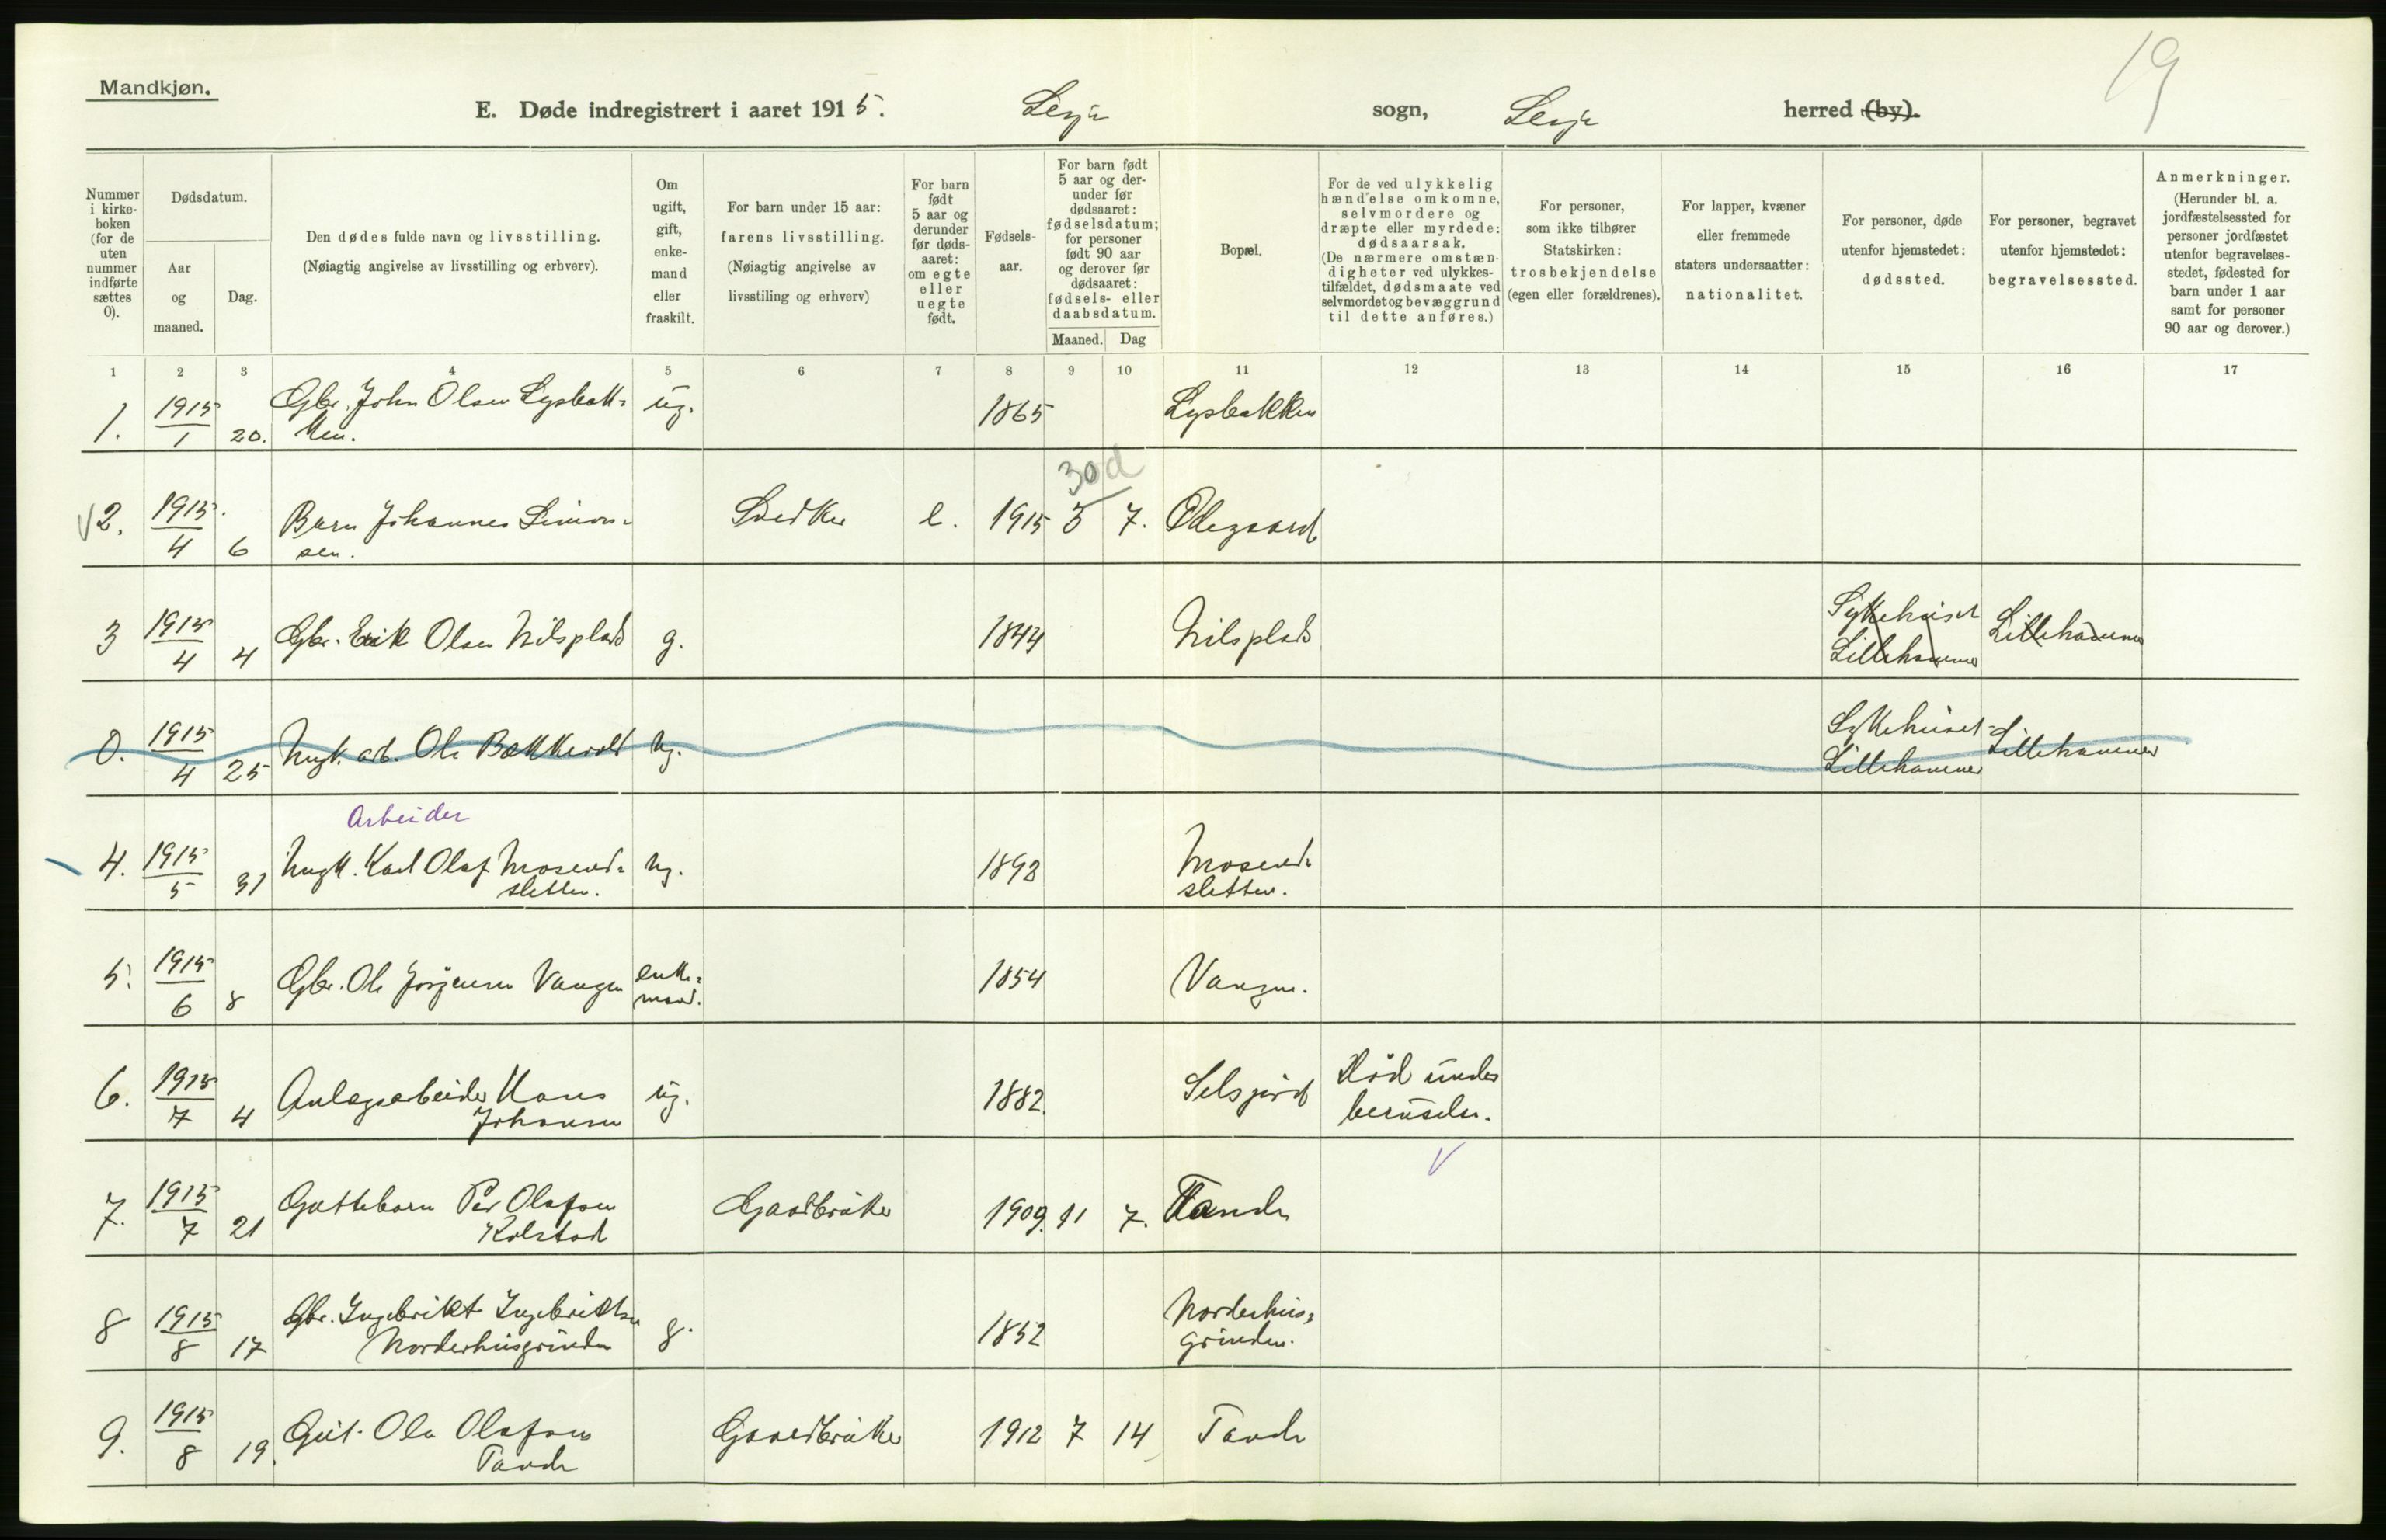 19
Mandkjøn.
E. Døde indregistrert i aaret 1915. Lesja sogn, Lesja herred (by).
Nummer i kirke-
boken
(for de
uten
nummer
indførte
sættes
0).
Dødsdatum.
Aar
og
maaned.
Dag.
Den dødes fulde navn og livsstilling.
(Nøiagtig angivelse av livsstilling og erhverv).
Om
ugift,
gift,
enke-
mand
eller
fraskilt.
For barn under 15 aar:
farens livsstilling.
(Nøiagtig angivelse av
livsstiling og erhverv)
For barn
født
5 aar og
derunder
før døds-
aaret:
om egte
eller
uegte
født.
Fødsels-
aar.
For barn født
5 aar og der-
under før
dødsaaret:
fødselsdatum;
for personer
født 90 aar
og derover før
dødsaaret:
fødsels- eller
daabsdatum.
Maaned. Dag
Bopæl.
For de ved ulykkelig
hændelse omkomne,
selvmordere og
dræpte eller myrdede:
dødsaarsak.
(De nærmere omstæn-
digheter ved ulykkes-
tilfældet, dødsmaate ved
selvmordet og bevæggrund
til dette anføres.)
For personer,
som ikke tilhører
Statskirken:
trosbekjendelse
(egen eller forældrenes).
For lapper, kvæner
eller fremmede
staters undersaatter:
nationalitet.
For personer, døde
utenfor hjemstedet:
dødssted.
For personer, begravet
utenfor hjemstedet:
begravelsessted.
Anmerkninger.
(Herunder bl. a.
jordfæstelsessted for
personer jordfæstet
utenfor begravelses-
stedet, fødested for
barn under 1 aar
samt for personer
90 aar og derover.)
1 2 3 4 5 6 7 8 9 10 11 12 13 14 15 16 17
1. 1915/1 20. Gbr. John Olsen Lysbak- ug. 1865 Lysbakken
ken.
30 d
2. 1915/4 6 Barn Johannes Simon- Snedker e. 1915 3 7. Ødegaard
sen.
3 1915/4 4 Gbr. Erik Olsen Nilsplads g. 1844 Nilsplads Sykehuset Lillehammer
Lillehammer
0. 1915/4 25 Ungk. arb. Ole Bækkevold ug. Sykehuset Lillehammer
Lillehammer
Arbeider
4. 1915/5 31 Ungk. Karl Olaf Mosend- ug. 1892 Mosend-
sletten. sletten.
5. 1915/6 8 Gbr. Ole Jørgensen Vangen enke- 1854 Vangen.
mand.
6. 1915/7 4 Anlægsarbeider Hans ug. 1882. Selsjord Død under
Johansen beruselse.
7. 1915/7 21 Guttebarn Per Olafsen Gaardbruker 1909. 11 7. Tande
Kolstad
8 1915/8 17 Gbr. Ingebrikt Ingebriktsen g. 1852 Norderhus-
Norderhusgrinden grinden.
9. 1915/8 19. Gut. Ola Olafsen Gaardbruker 1912 7 14 Tande
Tande